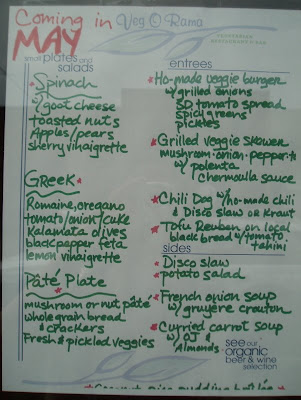 Coming in
MAY
Veg O Rama
small plates and
salads
Spinach
w/ goot cheese
toasted nuts
Apples/pears
sherry vinaigrette
Greek
Romaine, oregano
tomato/onion/cuke
kalamata olives
black pepper feta
lemon vinaigrette
Pâté Plate
mushroom or nut pâté
whole grain bread
& crackers
Fresh & pickled veggies
entrees
Ho-made veggie burger
w/ grilled onions
SD tomato spread
spicy greens
pickles
Grilled veggie skewer
mushroom·onion·pepper·t
w/ polenta
Chermoulla sauce
Chili Dog w/ho-made chili
& Disco slaw or Kraut
Tofu Reuben on local
black bread w/tomato
tahini
sides
Disco slaw
potato salad
French onion soup
w/ gruyère crouton
Curried carrot soup
w/ OJ &
Almonds
see our
organic
beer & wine
selection